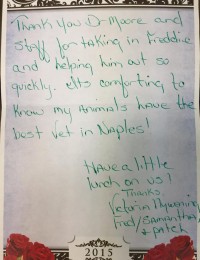 Thank you Dr Moore and
staff for taking in Freddie
and helping him out so
quickly. It's comforting to
know my animals have the
best vet in Naples!
Have a little
lunch on us!
Thanks,
Victoria
Fred/Samantha
& Patch
2015